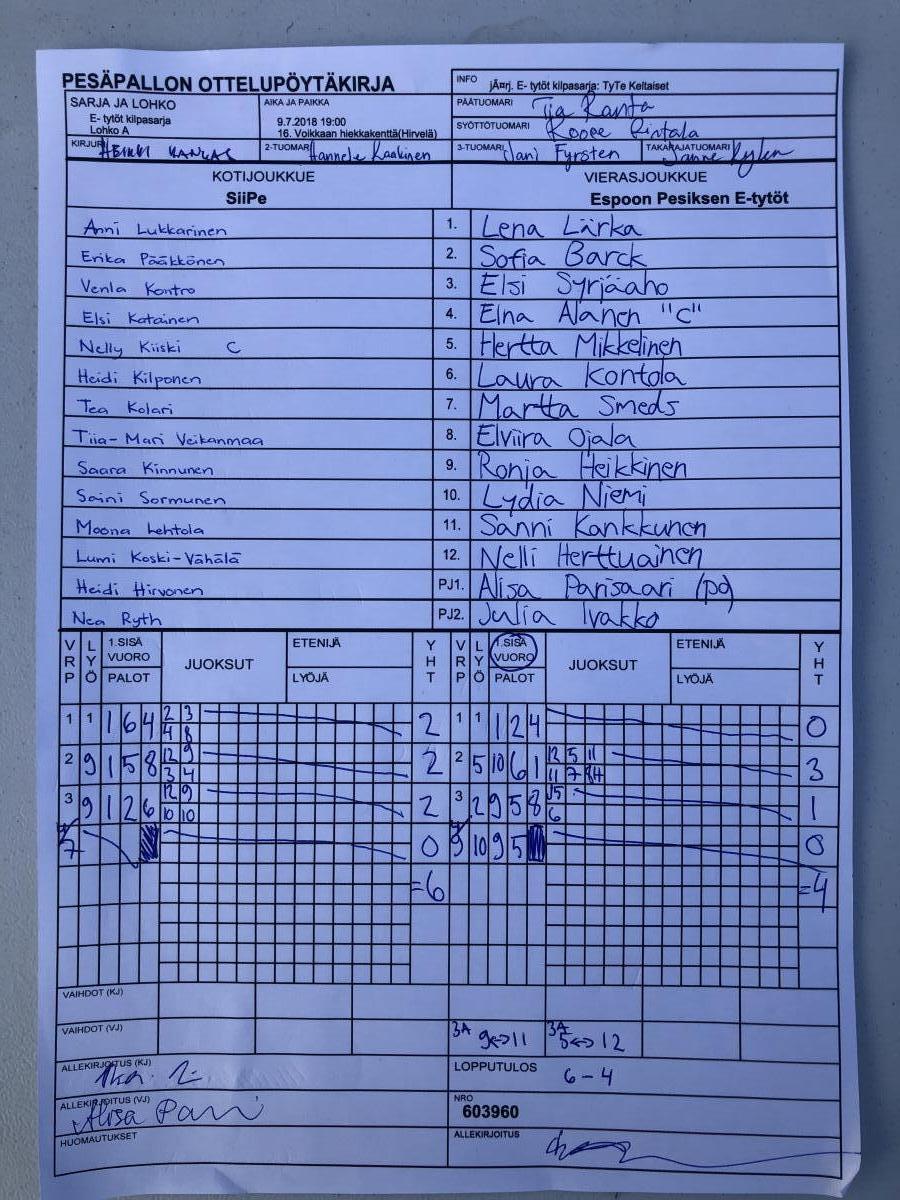 PESÄPALLON OTTELUPÖYTÄKIRJA
INFO jÃ¤rj. E- tytöt kilpasarja: TyTe Keltaiset
SARJA JA LOHKO
E- tytöt kilpasarja
Lohko A
AIKA JA PAIKKA
9.7.2018 19:00
16. Voikkaan hiekkakenttä(Hirvelä)
PÄÄTUOMARI Tia Ranta
SYÖTTÖTUOMARI Rintala
KIRJURI HEIKKI KANKAS
2-TUOMARI Hannele Kaakinen
3-TUOMARI Jani Fyrsten
TAKARAJATUOMARI Janne
KOTIJOUKKUE
SiiPe
VIERASJOUKKUE
Espoon Pesiksen E-tytöt
Anni Lukkarinen 1. Lena Lärka
Erika Pääkkönen 2. Sofia Barck
Venla Kontro 3. Elsi Syrjäaho
Elsi Katainen 4. Elna Alanen "C"
Nelly Kiiski C 5. Hertta Mikkelinen
Heidi Kilponen 6. Laura Kontola
Tea Kolari 7. Martta Smeds
Tiia-Mari Veikanmaa 8. Elviira Ojala
Saara Kinnunen 9. Ronja Heikkinen
Saini Sormunen 10. Lydia Niemi
Moona Lehtola 11. Sanni Kankkunen
Lumi Koski-Vähälä 12. Nelli Herttuainen
Heidi Hirvonen PJ1. Alisa Parisaari (pj)
Nea Ryth PJ2. Julia Ivakko
VRP LYÖ 1.SISÄ VUORO PALOT JUOKSUT ETENIJÄ LYÖJÄ YHT VRP LYÖ 1.SISÄ VUORO PALOT JUOKSUT ETENIJÄ LYÖJÄ YHT
1 1 1 6 4 2 3 2 1 1 1 2 4 0
4 8
2 9 1 5 8 12 9 2 2 5 10 6 1 12 5 11 3
3 4 11 7
3 9 1 2 6 12 9 2 3 2 9 5 8 1
10 10 6
7 0 9 10 9 5 0
=6 =4
VAIHDOT (KJ)
VAIHDOT (VJ) 3A 9↔11 3A 5↔12
ALLEKIRJOITUS (KJ)
LOPPUTULOS 6-4
ALLEKIRJOITUS (VJ) Alisa Pari
NRO
603960
HUOMAUTUKSET
ALLEKIRJOITUS